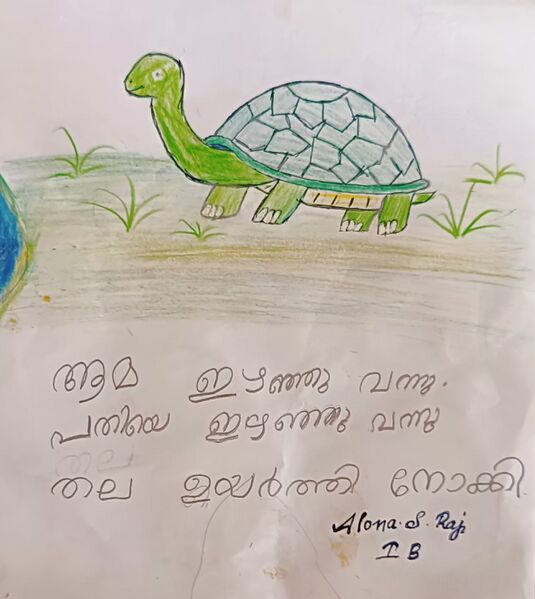 ആമ ഇഴഞ്ഞു വന്നു.
പതിയെ ഇഴഞ്ഞു വന്നു
തല
തല ഉയർത്തി നോക്കി
Alona. S. Raj
I B